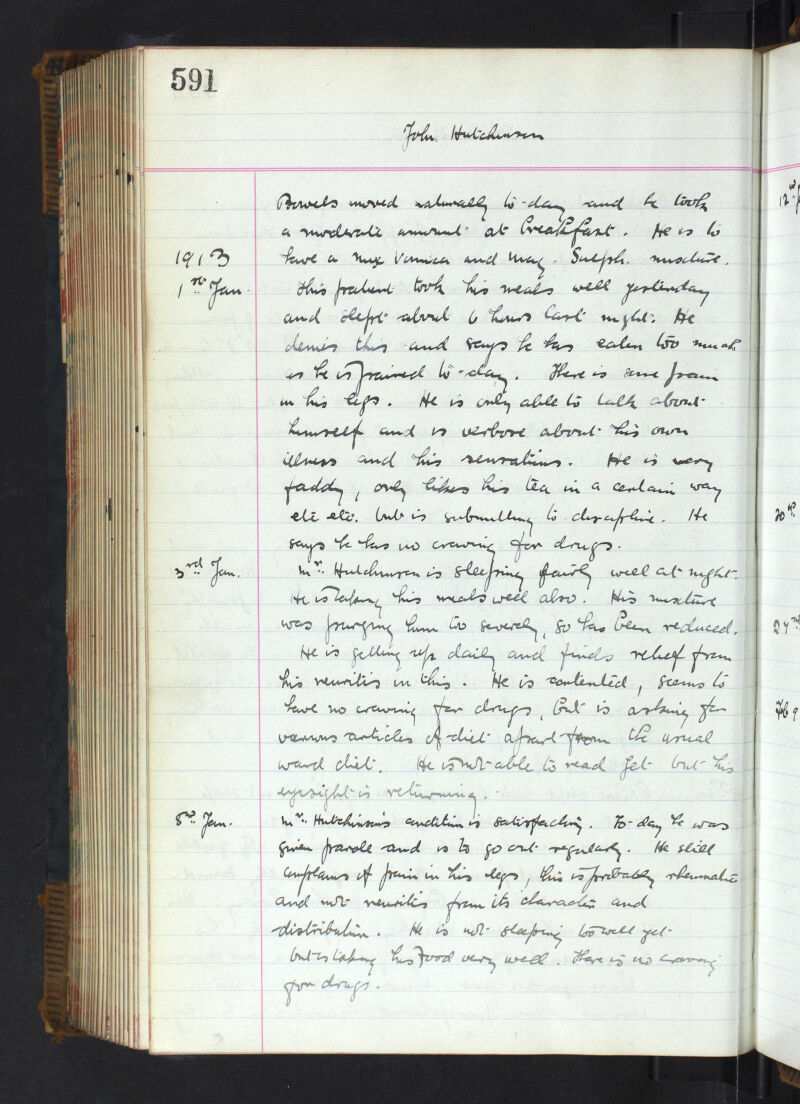 591
John Hutchinson
Bowels moved naturally to-day and he took
a moderate amount at breakfast. He is to
1913 have a nux vomica and mag. Sulph. mixture.
1st Jan. This patient took his meals well yesterday
and slept about 6 hours last night. He
denies this and says he has eaten too much
as he is pained to-day. There is some pain
in his legs. He is only able to talk about
himself and is verbose about his own
illness and his sensations. He is very
faddy, only likes his tea in a certain way
etc etc. but is submitting to discipline. He
says he has no craving for drugs.
3rd Jan. Mr. Hutchinson is sleeping fairly well at night.
He is taking his meals well also. His mixture
was purging him too severely, so has been reduced.
He is getting up daily and finds relief from
his neuritis in this. He is contented, seems to
have no craving for drugs, but is asking for
various articles of diet apart from the usual
ward diet. He is not able to read yet but his
eyesight is returning.
8th Jan. Mr. Hutchinson's condition is satisfactory. To-day he was
given parole and is to go out regularly. He still
complains of pain in his legs, this is probably rheumatic
and not neuritis from its character and
distribution. He is not sleeping too well yet
but is taking his food very well. There is no craving
for drugs.
12th
20th
Feb 9